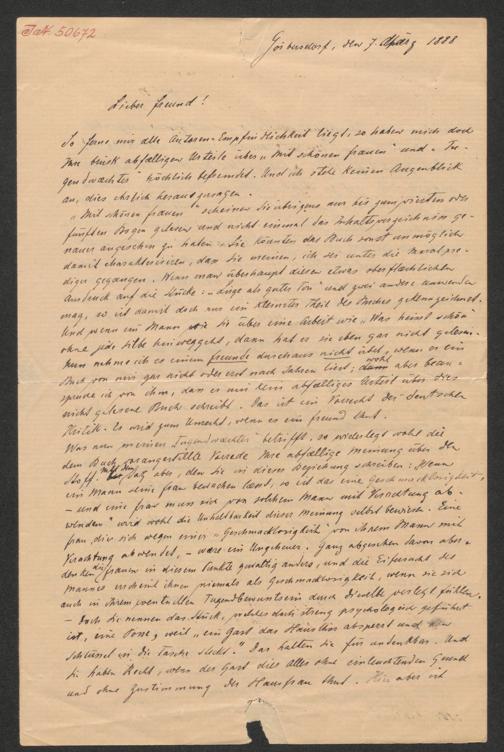 JaN 50672
Görbersdorf, den 7. März 1888
Lieber Freund!
So ferne mir alle Autoren-Empfindlichkeit liegt, so haben mich doch
Ihre brüsk abfälligen Urteile über „Mit schönen Frauen" und „Tu-
gendwächter" höchlich befremdet. Und ich stehe keinen Augenblick
an, dies ehrlich herauszusagen.
„Mit schönen Frauen" scheinen Sie übrigens nur bis zum vierten oder
fünften Bogen gelesen und nicht einmal das Inhaltsverzeichniss ge-
nauer angesehen zu haben. Sie könnten das Buch sonst unmöglich
damit charakterisiren, dass Sie meinen, ich sei unter die Moralpre-
diger gegangen. Wenn man überhaupt diesen etwas oberflächlichen
Ausdruck auf die Stücke: „Lüge als guter Ton" und zwei andere anwenden
mag, so ist damit doch nur ein kleinster Theil des Buches gekennzeichnet.
Und wenn ein Mann wie Sie über eine Arbeit wie „Was heisst schön"
ohne jede Silbe hinweggeht, dann hat er sie eben gar nicht gelesen.
Nun nehme ich es einem Freunde durchaus nicht übel, wenn er ein
Buch von mir gar nicht oder erst nach Jahren liest; wohl aber bean-
spruche ich von ihm, dass er mir kein abfälliges Urteil über das
nicht gelesene Buch schreibt. Das ist ein Vorrecht der deutschen
Kritik. Es wird zum Unrecht, wenn es ein Freund thut.
Was nun meinen Tugendwächter betrifft, so widerlegt wohl die
dem Buch vorangestellte Vorrede Ihre abfällige Meinung über den
Stoff. Mit dem Satz aber, den Sie in dieser Beziehung schreiben: „Wenn
ein Mann seine Frau bewachen lässt, so ist das eine Geschmacklosigkeit,
– und eine Frau muss sich von solchem Mann mit Verachtung ab-
wenden" wird wohl die Unhaltbarkeit dieser Meinung selbst bewiesen. Eine
Frau, die sich wegen einer „Geschmacklosigkeit" von Ihrem Mann mit
Verachtung abwendet, – wäre ein Ungeheuer. Ganz abgesehen davon aber
denken die Frauen in diesem Punkte gründlich anders, und die Eifersucht des
Mannes erscheint ihnen niemals als Geschmacklosigkeit, wenn sie sich
auch in Ihrem eventuellen Tugendbewusstsein durch dieselbe verletzt fühlen.
– Doch Sie nennen das Stück, welches doch streng psychologisch geführt
ist, eine Posse, weil „ein Gast das Haustor absperrt und den
Schlüssel in die Tasche steckt." Das halten Sie für undenkbar. Und
Sie haben Recht, wenn der Gast dies alles ohne einleuchtenden Grund
und ohne Zustimmung der Hausfrau thut. Hier aber ist